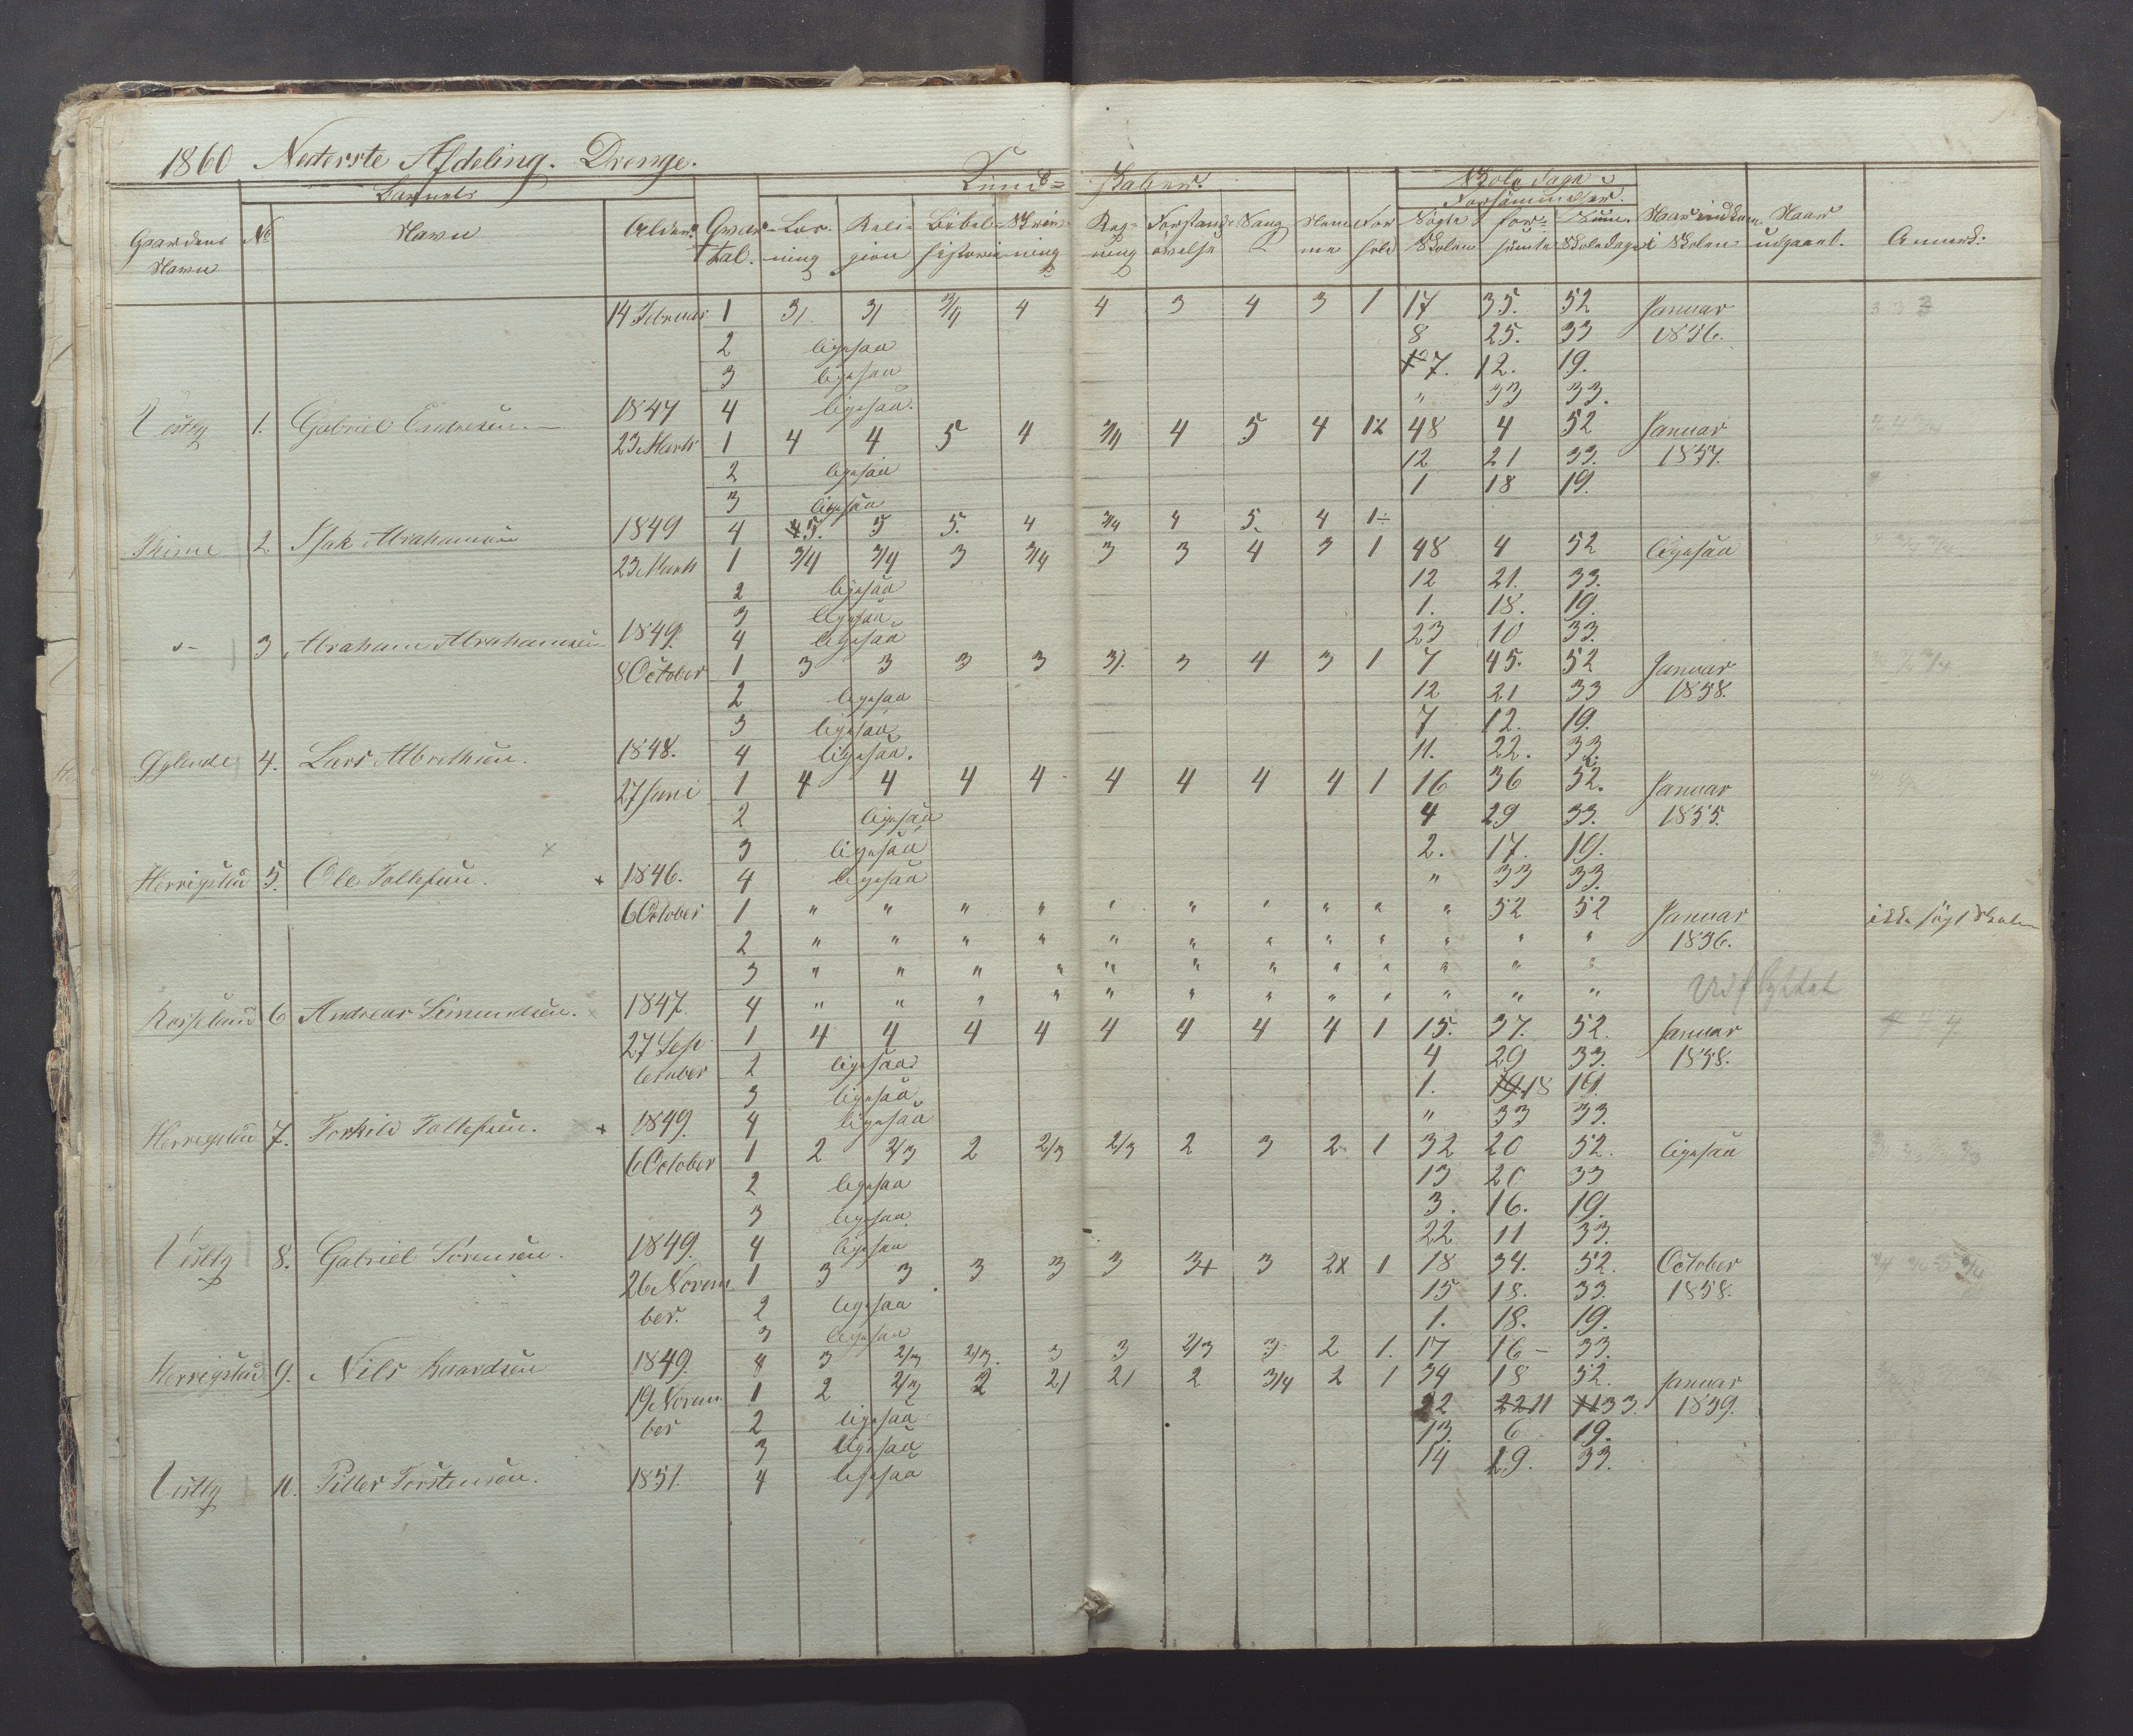 1860 Nederste Afdeling. Drenge.
Barnets Kund= skaber. Skoledage
Forsømmelser.
Gaardens Navn No Navn Alder. Qvartal. Læsning Religion Bibelhistorie Skrivning Regning Forstandsøvelse Sang Nemme Forhold Søgte Skolen forsømte Sum. Skoledage Naar indkom. i Skolen Naar udgaaet. Anmerk:
14 Februar 1 3/ 3/ 3/4 4 4 3 4 3 1 17 35. 52 Januar
2 ligesaa 8 25. 33 1856.
3 ligesaa 7. 12. 19.
Vistly 1. Gabriel Endresen 1847 4 ligesaa. " 33 33.
23 Marts 1 4 4 5 4 3/4 4 5 4 12 48 4 52 Januar
2 ligesaa 12 21 33. 1857.
3 ligesaa 1 18 19.
Thime 2 Isak Abrahamsen 1849 4 5. 5 5. 4 3/4 4 5. 4 1
23 Marts 1 3/4 3/4 3 3/4 3 3 4 3 1 48 4 52 ligesaa
2 ligesaa 12 21. 33.
3 ligesaa 1. 18. 19.
3 Abraham Abrahamsen 1849. 4 ligesaa 23 10 33.
8 October 1 3 3 3 3 3/. 3 4 3 1 7 45. 52 Januar
2 ligesaa 12 21 33 1858.
3 ligesaa 7 12. 19.
4. Lars Albrethsen. 1848. 4 ligesaa. 11. 22. 33.
27 Juni 1 4 4 4 4 4 4 4 4 1 16 36 52. Januar
2 ligesaa 4 29 33. 1855.
3 ligesaa 2. 17. 19.
Herrigstad 5. Ole Tollefsen. + 1846. 4 ligesaa " 33 33.
6 October 1 " " " " " " " " " " 52 52 Januar ikke søgt Skolen
2 " " " " " " " " " " " " 1856.
3 " " " " " " " " " " " "
6 Andreas Simundsen. 1847. 4 " " " " " " " " " " " " Udflyttet
27 Sep- 1 4 4 4 4 4 4 4 4 1 15. 37. 52. Januar
tember 2 ligesaa 4 29 33. 1858.
3 ligesaa 1. 18 19.
Herregstad 7. Torkild Tollefsen. + 1849. 4 ligesaa " 33 33.
6 October 1 2 2/3 2 2/3 2/3 2 3 2 1 32 20 52. ligesaa
2 ligesaa 13 20 33
3 ligesaa 3. 16. 19.
Vistly 8. Gabriel Sørensen. 1849. 4 ligesaa 22 11 33.
26 Novem 1 3 3 3 3 3 3+ 3 2x 1 18 34. 52. October
ber. 2 ligesaa 15 18. 33. 1858.
3 ligesaa 1. 18. 19.
Herregstad 9. Nils Baardsen 1849. 4 3 2/3 2/3. 3 3 2/3 3 2 1. 17 16 – 33.
19 Novem 1 2 2/3 2 2/ 2/ 2 3/4 2 1 34 18 52. Januar
ber 2 ligesaa 22 22 11 11 33. 1859.
3 ligesaa 13. 6 19.
Vistly 10. Pitter Torstensen. 1851. 4 ligesaa 14 19. 33.